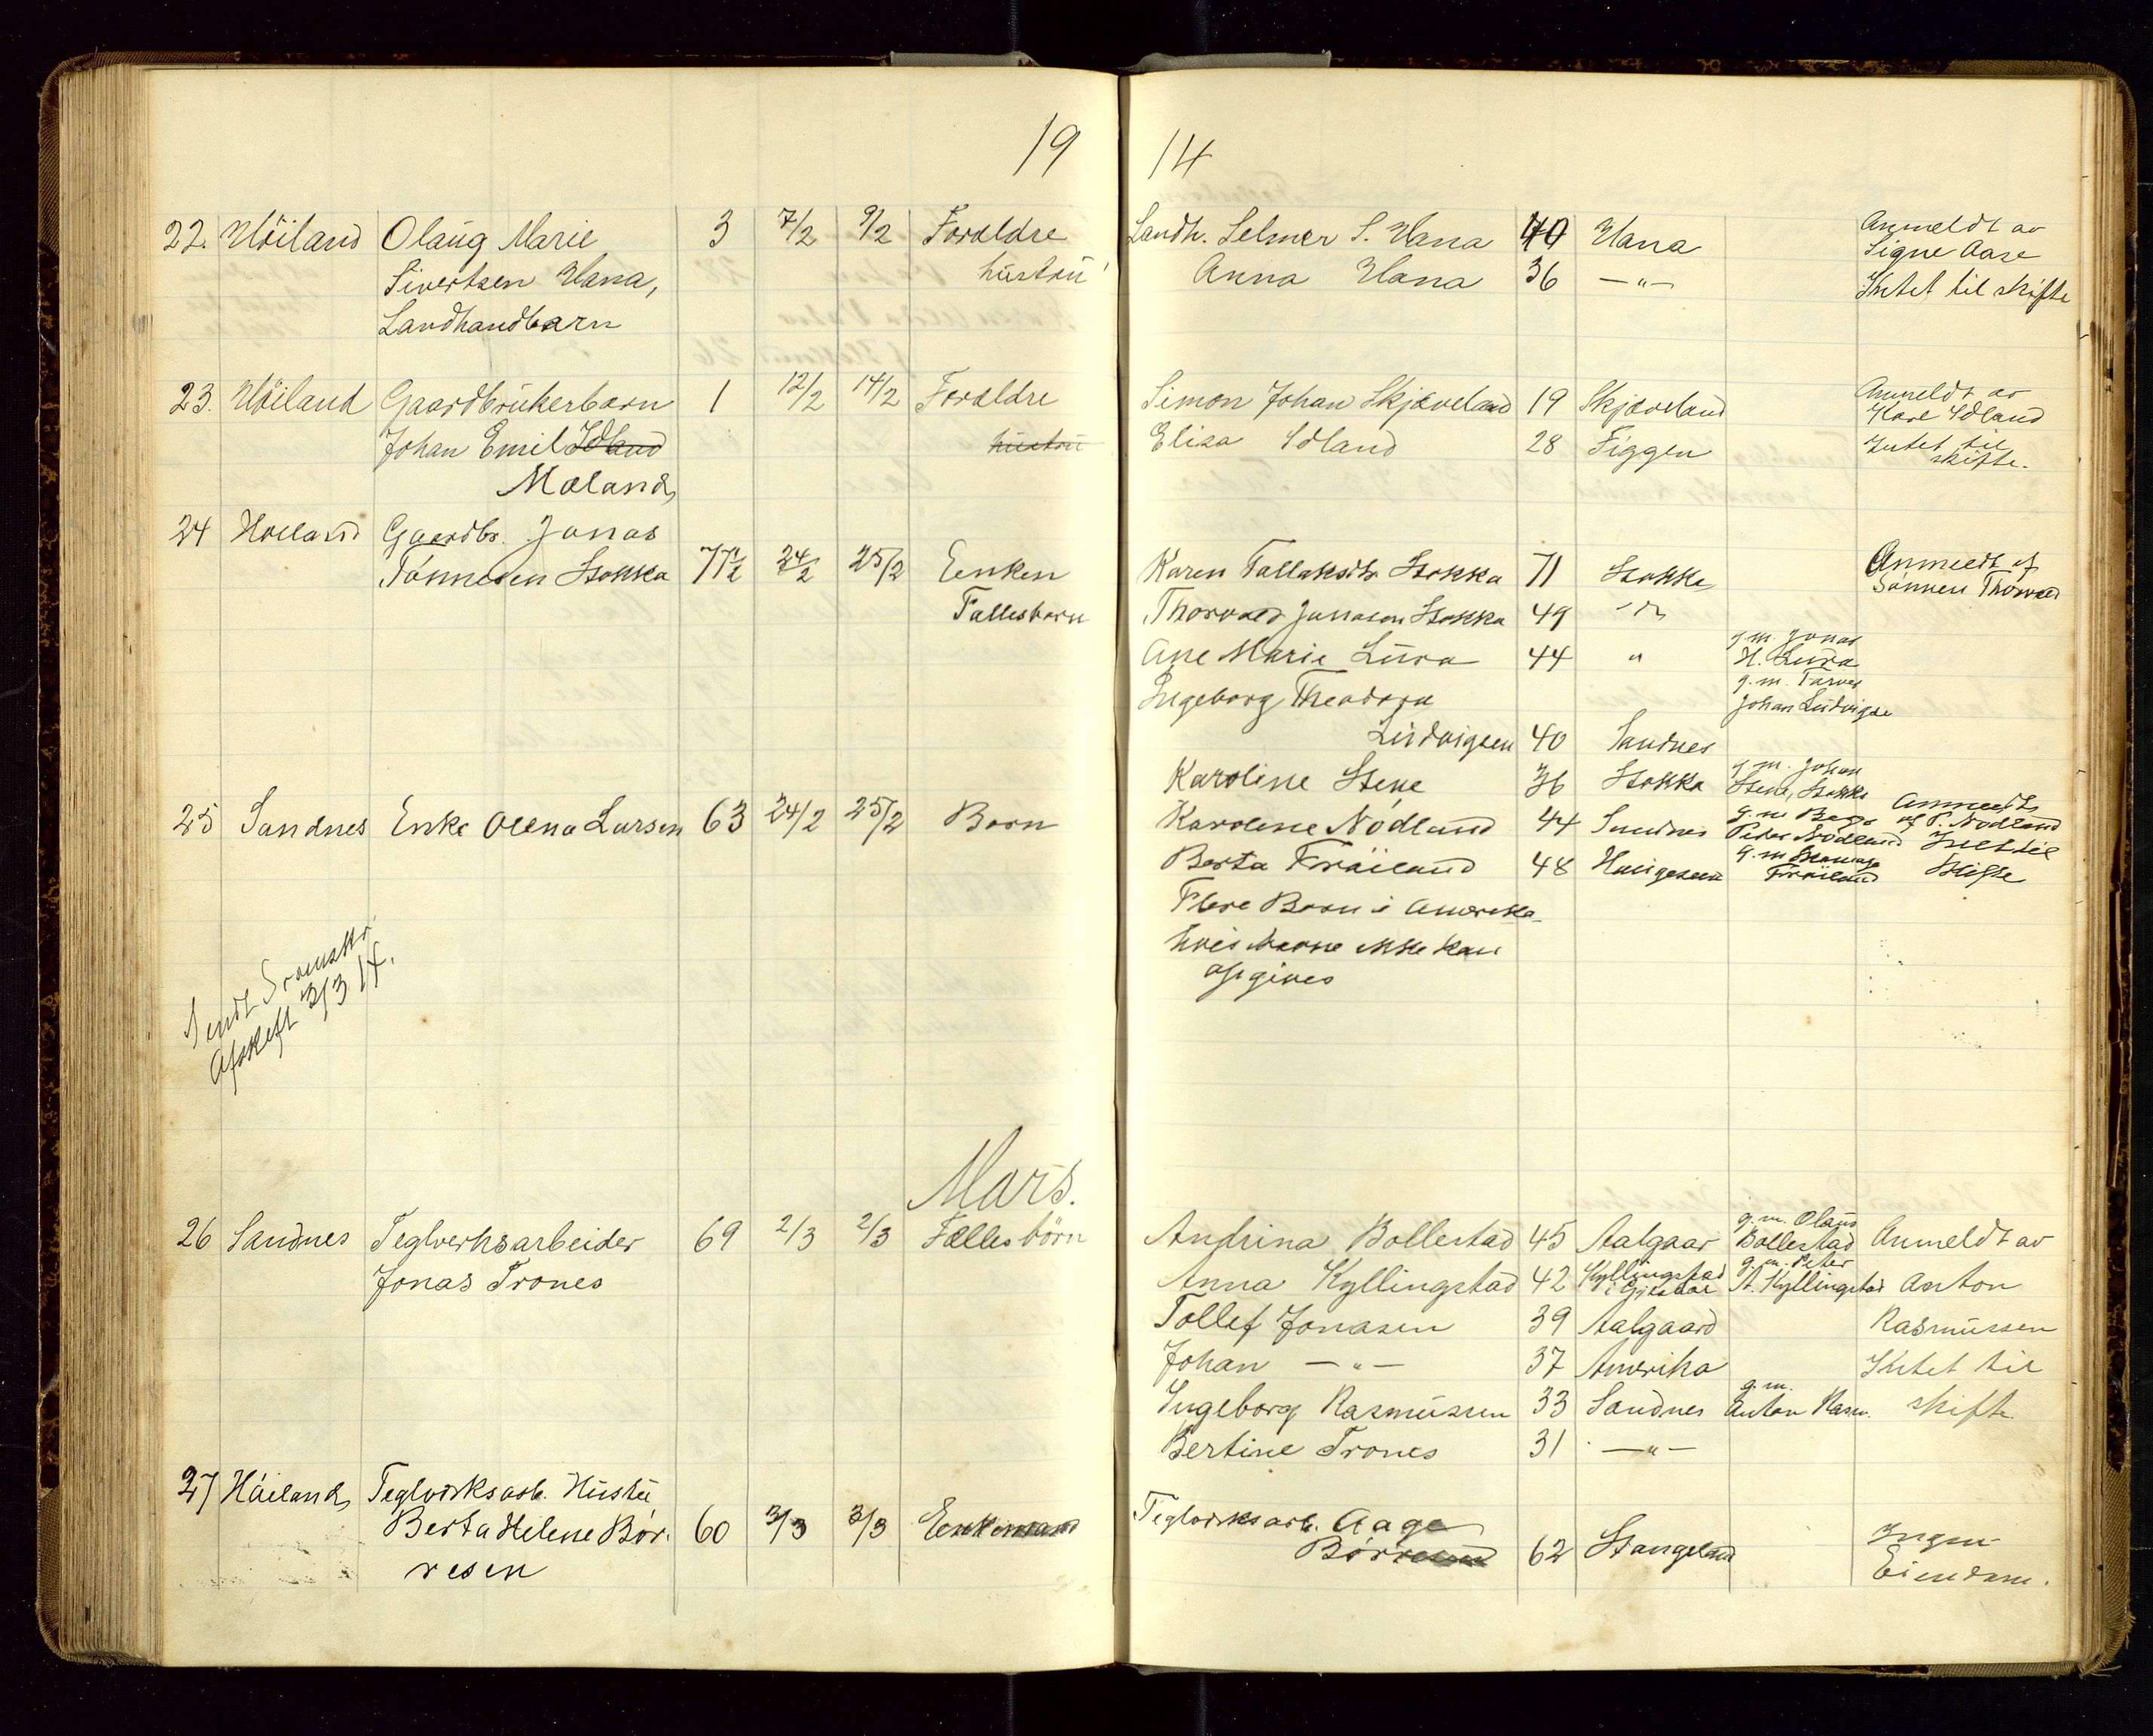 19 14
22. Höiland Olaug Marie 3 7/2 9/2 Foreldre Landh. Selmer S. Hana 40 Hana Anmeldt av
Sivertsen Hana, hustru Anna Hana 36 —"— Signe Aase
Landhandbarn Intet til skifte
23. Höiland Gaardbrukerbarn 1 12/2 14/2 Foreldre Simon Johan Skjæveland 19 Skjæveland Anmeldt av
Johan Emil Idland hustru Eliza Idland 28 Figgen Karl Idland
Mæland, Intet til
skifte.
24 Hoiland Gaardbr. Jonas
Tönnesen Stokka 77½ 24/2 25/2 Enken Karen Tallaksdtr. Stokka 71 Stokka Anmeldt af
Fallesbarn Thorvald Jonasen Stokka 49 " Sönnen Thorvald
Ane Marie Lura 44 " g.m. Jonas
H. Lura
Ingeborg Theodora g.m. Farver
Johan Ludvigse
Ludvigsen 40 Sandnes
Karoline Stene 36 Stokka g.m. Johan
Stene, Stokka
25 Sandnes Enke Olena Larsen 63 24/2 25/2 Born Karolene Nödland 44 Sandnes g.m. Bager Anmeldt
Peder Nödland af P. Nödland
Berta Fröiland 48 Haugesund g.m. Fröiland Intet til
Skifte
Flere Born i Amerika
hvis Navne ikke kan
opgives
Sendt Sorenskr.
Afskrift 3/3 14.
Mars.
26 Sandnes Teglverksarbeider 69 2/3 2/3 Fælles börn Andrina Bollestad 45 Aalgaar g.m. Olaus
Bollestad Anmeldt av
Jonas Trones Anna Kyllingstad 42 Kyllingstad
i Gjesdal g.m. Peter
A. Kyllingstad Anton
Tollef Jonasen 39 Aalgaard Rasmussen
Johan —"— 37 Amerika Intet til
Ingeborg Rasmussen 33 Sandnes g.m.
Anton Rasm. skifte.
Bertine Trones 31 —"—
27 Höiland, Teglverksarb. Hustru Teglverksarb. Aage
Berta Helene Bör- 60 3/3 3/3 Enkemand Börresen 62 Stangeland Ingen
resen Eiendom.